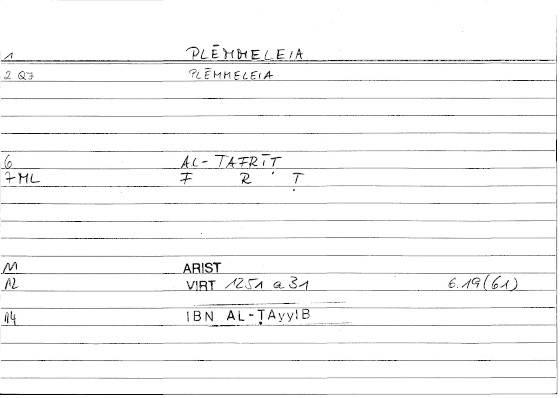 1 PLĒMMELEIA
2 Q7 PLĒMMELEIA
6 AL-TAFRĪṬ
7 ML F R Ṭ
11 ARIST
12 VIRT 1251 a 31 6.19(61)
14 IBN AL-ṬAyyIB